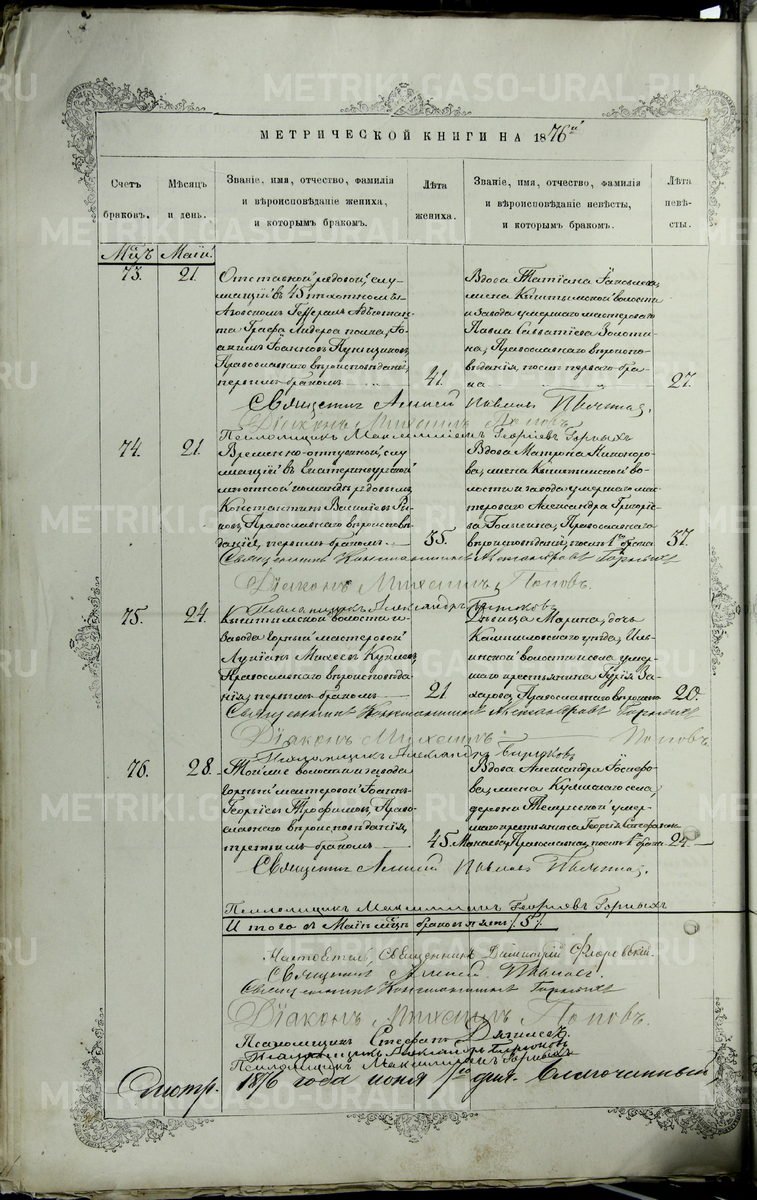 METRIKI.GASO-URAL.RU
МЕТРИЧЕСКОЙ КНИГИ НА 1876й
Счетъ браковъ.
Мѣсяцъ и день.
Званіе, имя, отчество, фамилія и вѣроисповѣданіе жениха, и которымъ бракомъ.
Лѣта жениха.
Званіе, имя, отчество, фамилія и вѣроисповѣданіе невѣсты, и которымъ бракомъ.
Лѣта невѣсты.
Мцъ Маій
73.
21.
Отставной рядовой, слу-
жащій въ 45 пѣхотномъ
Азовскомъ Генералъ Адъютан-
та Графа Лидерса полка, Іо-
акимъ Іоанновъ
Православнаго вѣроисповѣданія,
первымъ бракомъ
41.
Вдова Татіана Яковлева,
жена Кыштымской волости
и завода умершаго мастероваго
Павла Савватіева Золоти-
на, Православнаго вѣроиспо-
вѣданія, послѣ перваго бра-
ка
27.
Священникъ Алексій Павловъ
Діаконъ Михаилъ Поповъ
Псаломщикъ Максимиліанъ Георгіевъ Горныхъ
74.
21.
Временно-отпускной, слу-
жащій въ Екатеринбургской
мѣстной командѣ рядовымъ,
Константинъ Василіевъ
Православнаго вѣроисповѣ-
данія, первымъ бракомъ
35.
Вдова Матрона Никиноро-
ва, жена Кыштымской во-
лости и завода умершаго мас-
тероваго Александра Григорь-
ева Православнаго
вѣроисповѣданія, послѣ 1го брака
37.
Священникъ Константинъ Александровъ Горныхъ
Діаконъ Михаилъ Поповъ.
Псаломщикъ Александръ Бирюковъ
75.
24.
Кыштымской волости и
завода горный мастеровой
Лукіанъ Моисеевъ
Православнаго вѣроисповѣда-
нія, первымъ бракомъ
21
Дѣвица Марина, дочь
Камышловскаго уѣзда, Иль-
инской волости и села умер-
шаго крестьянина Гурія За-
харова, Православнаго вѣроиспов
20.
Священникъ Константинъ Александровъ Горныхъ
Діаконъ Михаилъ Поповъ.
Псаломщикъ Александръ Бирюковъ
76.
28.
Той же волости и завода
горный мастеровой Іоаннъ
Георгіевъ Трофимовъ, Право-
славнаго вѣроисповѣданія,
третьимъ бракомъ
45.
Вдова Александра Іосифо-
ва, жена села
деревни умер-
шаго крестьянина Георгія
Православная, послѣ 1го брака
24
Священникъ Алексій Павловъ
Псаломщикъ Максимиліанъ Георгіевъ Горныхъ
Итого въ Маіѣ мцѣ браковъ пять /5/
Настоятель, Священникъ Димитрій Флоровскій.
Священникъ Алексій Павловъ.
Священникъ Константинъ Горныхъ
Діаконъ Михаилъ Поповъ.
Псаломщикъ Стефанъ
Псаломщикъ Александръ Бирюковъ
Псаломщикъ Максимиліанъ Горныхъ
Смотр. 1876 года іюня дня. Благочинный